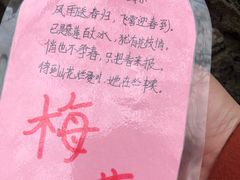 风雨送春归，飞雪迎春到。
已是悬崖百丈冰，犹有花枝俏。
俏也不争春，只把春来报。
待到山花烂漫时，她在丛中笑。
梅